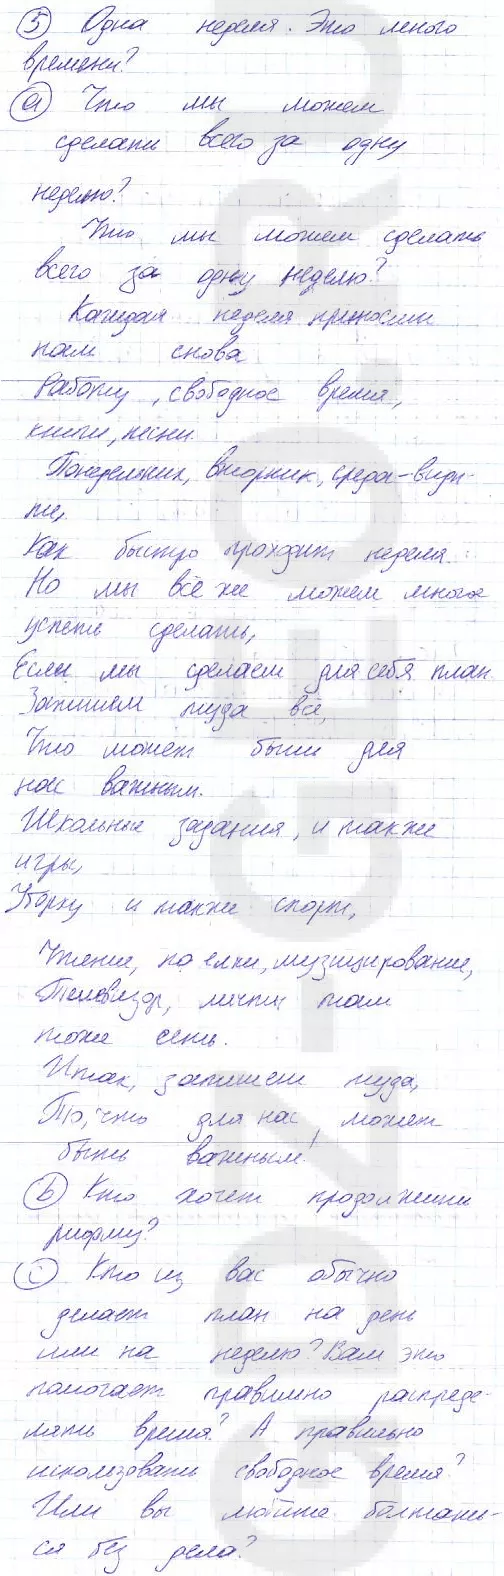 5 Одна неделя. Это много
времени?
a Что мы можем
сделать всего за одну
неделю?
Что мы можем сделать
всего за одну неделю?
Каждая неделя приносит
нам снова
Работу, свободное время,
книги, песни.
Понедельник, вторник, среда-види-
те,
Как быстро проходит неделя.
Но мы всё же можем многое
успеть сделать,
Если мы сделаем для себя план.
Запишем туда всё,
Что может быть для
нас важным.
Школьные задания, и также
игры,
Уборку и также спорт,
Чтение, музицирование,
Телевизор, мечты там
тоже есть.
Итак, запишем туда,
То, что для нас может
быть важным!
b Кто хочет продолжить
рифму?
c Кто из вас обычно
делает план на день
или на неделю? Вам это
помогает правильно распреде-
лять время? А правильно
использовать свободное время?
Или вы любите болтать-
ся без дела?
GDZ-GLO.RU